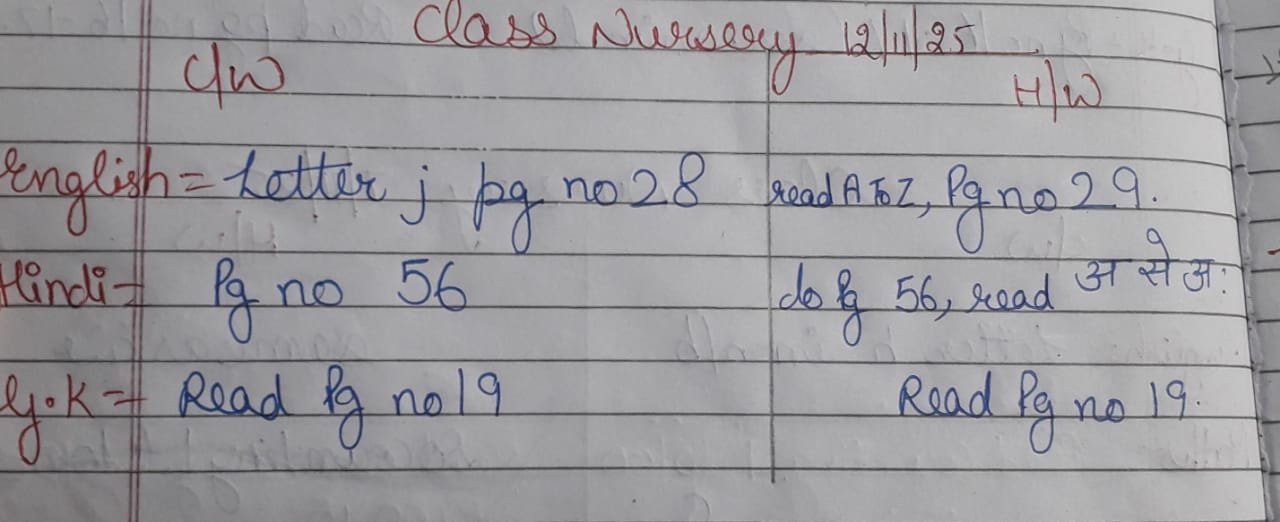 Class Nursery 12/11/25
C/W H/W
English = Letter j pg no 28 read A To Z, Pg no 29.
Hindi = Pg no 56 do Pg 56, read अ से अः
G.K = Read Pg no 19 Read Pg no 19.